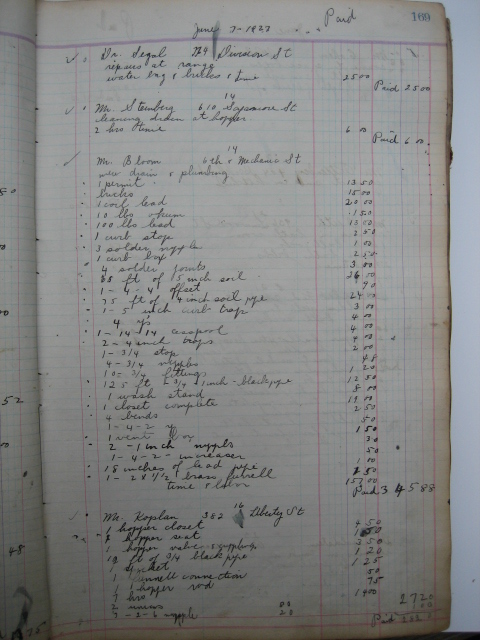 Paid
160
June 7 - 1923
Dr. Segal 729 Division St
repairs at range
water bag & bricks & time 25 00
Paid 25 00
14
Mr Steinberg 610 Sycamore St
cleaning drain at hopper
2 hrs time 6 00
Paid 6 00
14
Mr. Bloom 6th & Mechanic St
new drain & plumbing
1 permit 13 50
bricks 15 00
1 coil lead 20 00
10 lbs okum 1 50
100 lbs lead 13 00
1 curb stop 2 50
3 solder nypple 1 00
1 curb box 2 50
4 solder joints 3 00
65 ft of 5 inch soil
1 - 4 - 4 offset 90
75 ft of 4 inch soil pipe
1 - 5 inch curb trap 3 00
4 ys 4 00
1 - 14 - 14 cesspool 4 00
2 - 4 inch traps 4 00
1 - 3/4 stop 2 00
4 - 3/4 nypples 48
10 - 3/4 fittings 1 20
125 ft - 3/4 & 1 inch - black pipe 12 50
1 wash stand 8 00
1 closet complete
4 bends 2 50
1 - 4 - 2 y 50
1 vent 1 50
2 - 1 inch nypples 30
1 - 4 - 2 - increaser 50
18 inches of lead pipe 1 00
1 - 2 x 1 1/2 brass furrell
time & labor 157 00
Paid 345 88
16
Mr. Koplan 382 Liberty St
1 hopper closet 4 50
1 hopper seat
1 hopper valve & supplying 3 50
12 ft of 3/4 black pipe 1 20
1 1 25
1 connection 50
1 hopper rod 75
hrs 14 00
2 unions 27 20
2 - 6 nypple 20
Paid
52
48